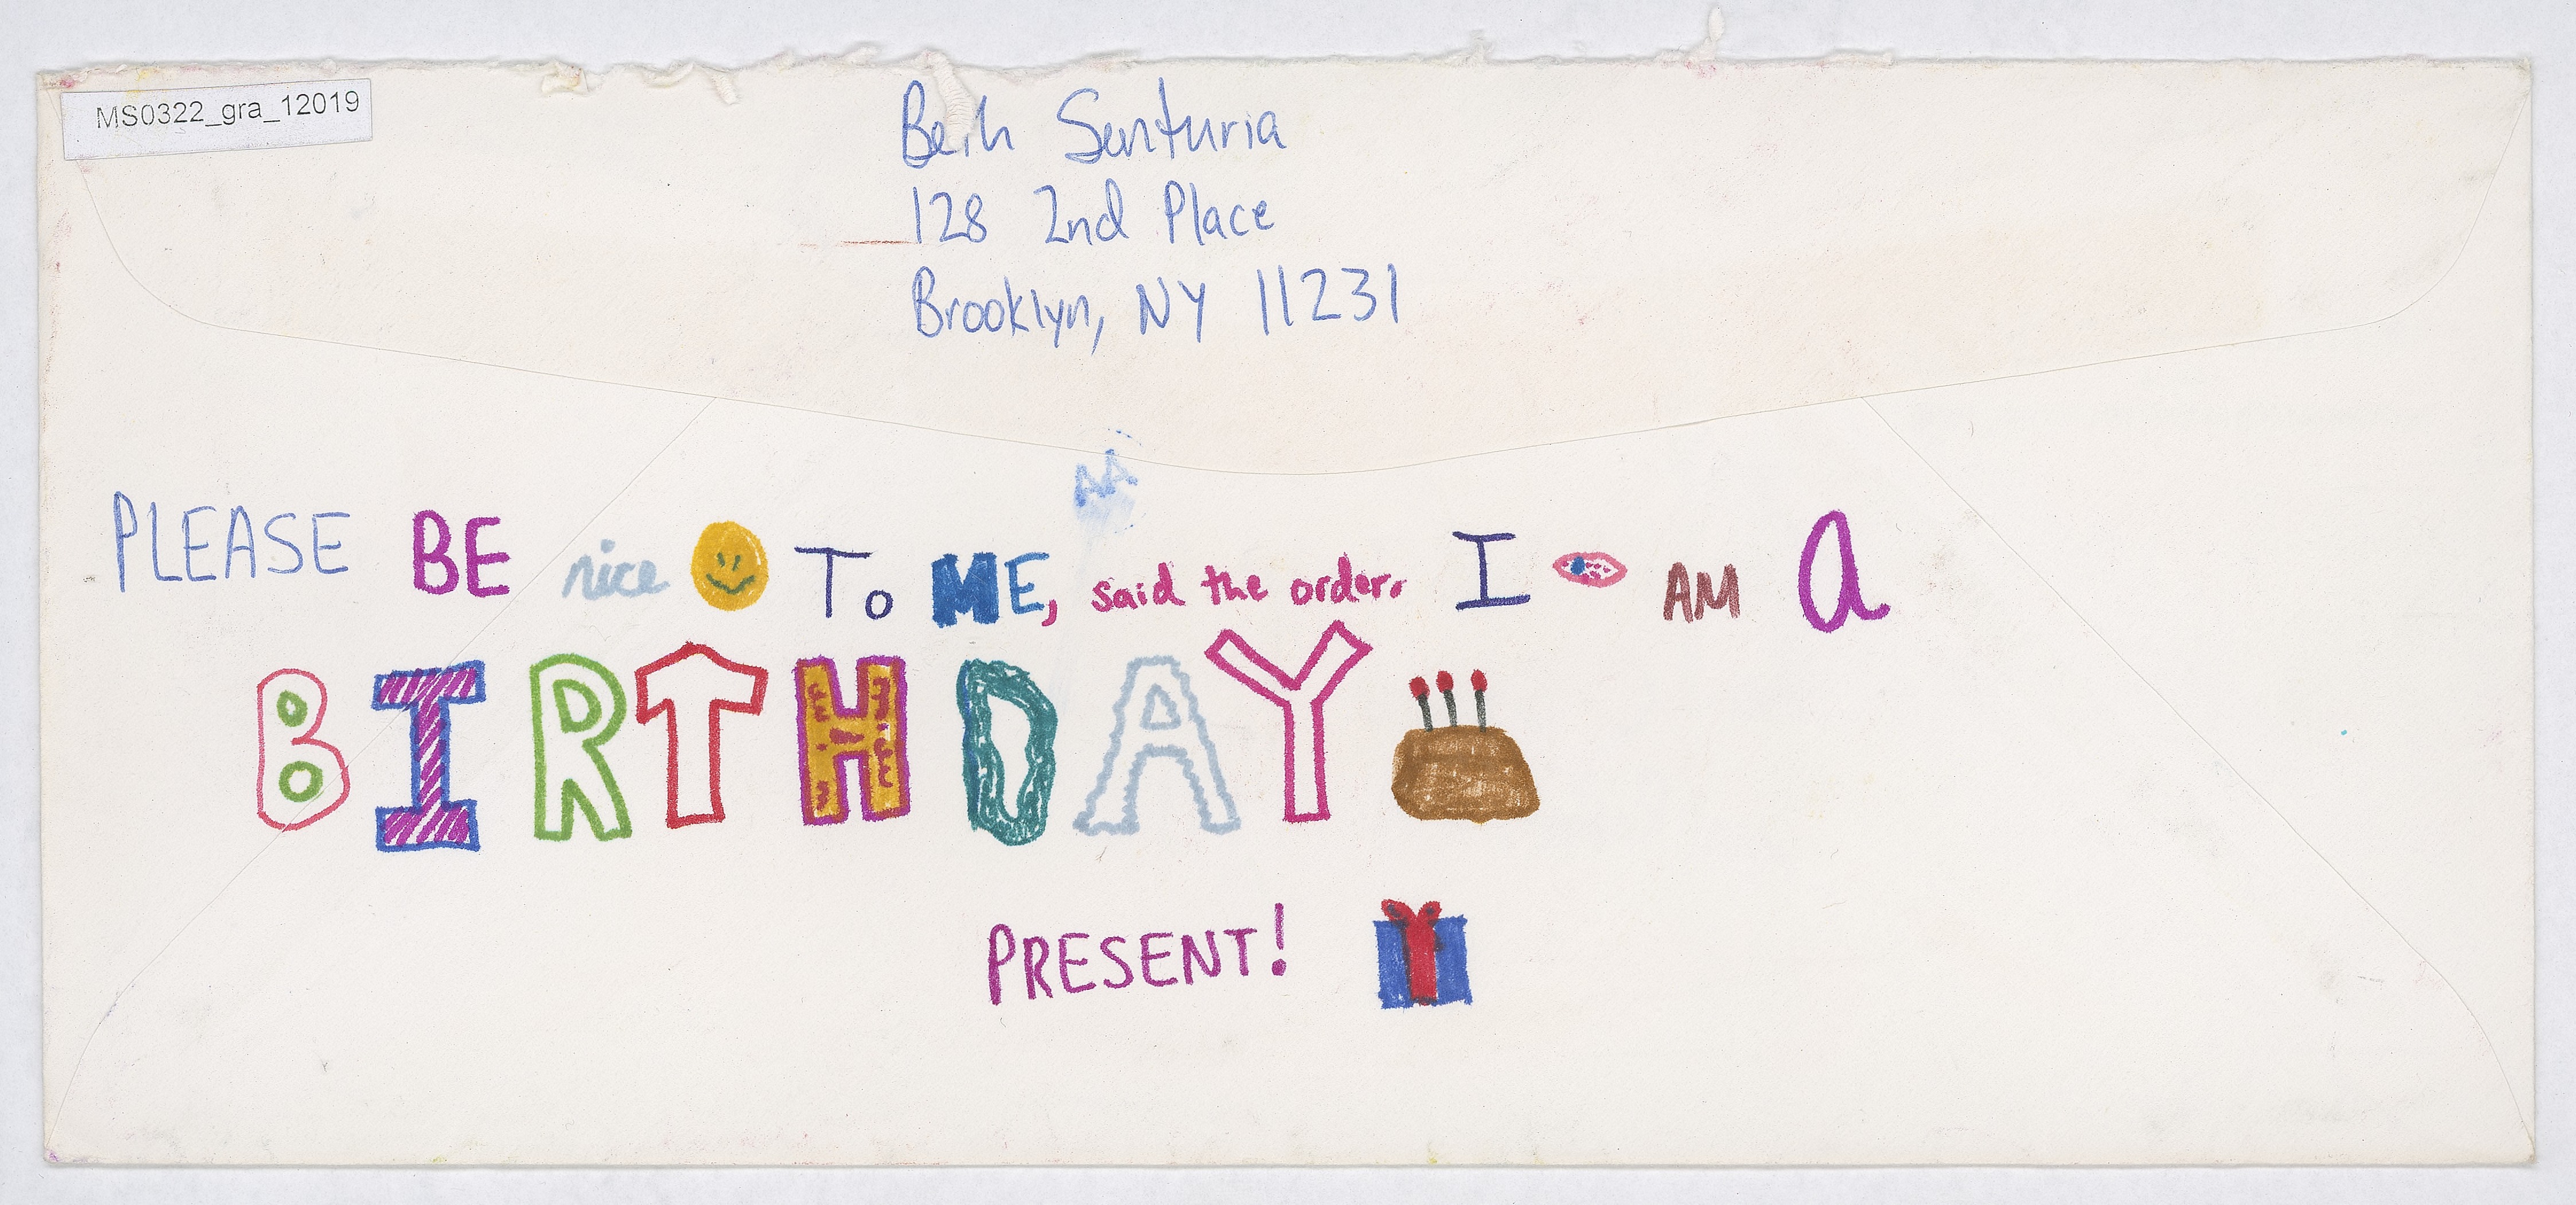 MS0322_gra_12019
Beth Senturia
128 2nd Place
Brooklyn, NY 11231
PLEASE BE nice To ME, said the order. I AM A
BIRTHDAY
PRESENT!